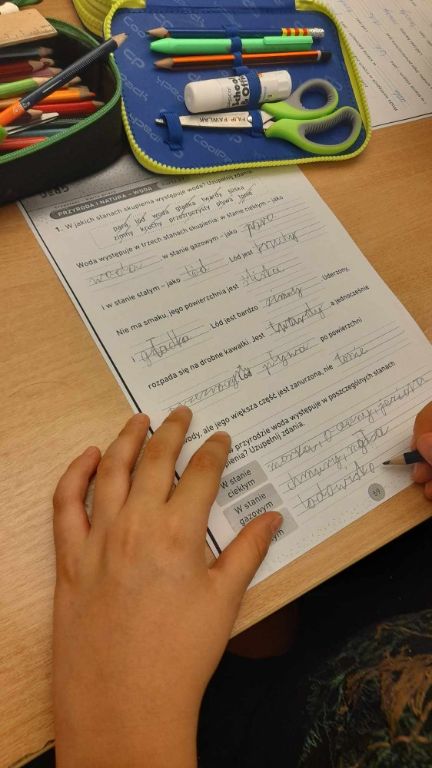 PRZYRODA I NATURA – WODA
1. W jakich stanach skupienia występuje woda? Uzupełnij zdania.
para lód woda gładka twardy śliska
zimny kruchy przezroczysty pływa tonie
Woda występuje w trzech stanach skupienia: w stanie ciekłym – jako
woda w stanie gazowym – jako para
i w stanie stałym – jako lód Lód jest kruchy
Nie ma smaku, jego powierzchnia jest śliska
i gładka Lód jest bardzo zimny Uderzony,
rozpada się na drobne kawałki. Jest twardy a jednocześnie
Lód pływa po powierzchni
wody, ale jego większa część jest zanurzona, nie tonie
w przyrodzie woda występuje w poszczególnych stanach
Uzupełnij zdania.
W stanie ciekłym morza, oceany, jeziora
W stanie gazowym chmury, mgła
lodowisko
59
COOLPACK
FILIP PAWLAK
School